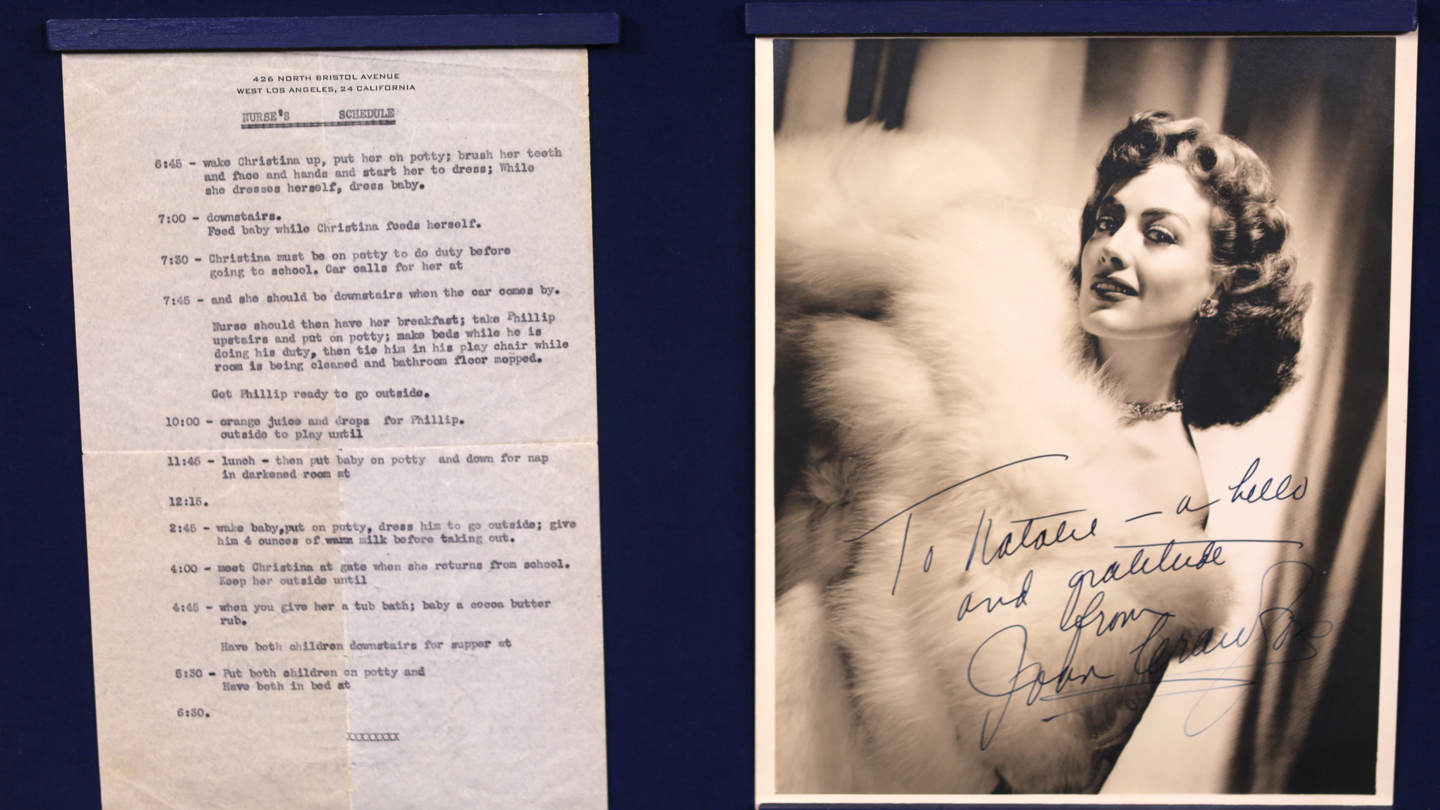 426 NORTH BRISTOL AVENUE
WEST LOS ANGELES, 24 CALIFORNIA
NURSE'S SCHEDULE
6:45 - wake Christina up, put her on potty; brush her teeth
and face and hands and start her to dress; While
she dresses herself, dress baby.
7:00 - downstairs.
Feed baby while Christina feeds herself.
7:30 - Christina must be on potty to do duty before
going to school. Car calls for her at
7:45 - and she should be downstairs when the car comes by.
Nurse should then have her breakfast; take Phillip
upstairs and put on potty; make beds while he is
doing his duty, then tie him in his play chair while
room is being cleaned and bathroom floor mopped.
Get Phillip ready to go outside.
10:00 - orange juice and drops for Phillip.
outside to play until
11:45 - lunch - then put baby on potty and down for nap
in darkened room at
12:15.
2:45 - wake baby,put on potty, dress him to go outside; give
him 4 ounces of warm milk before taking out.
4:00 - meet Christina at gate when she returns from school.
Keep her outside until
4:45 - when you give her a tub bath; baby a cocoa butter
rub.
Have both children downstairs for supper at
5:30 - Put both children on potty and
Have both in bed at
6:30.
XXXXXXXX
To Natalie — a hello
and gratitude
from
Joan Crawford